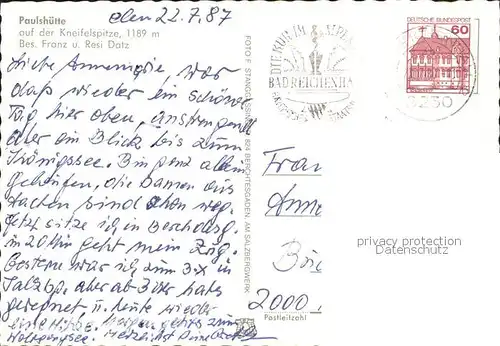 Paulshütte
auf der Kneifelspitze, 1189 m
Bes. Franz u. Resi Datz
den 22.7.87
Liebe Annemarie, war
daß wieder ein schöner
Tag hier oben, anstrengend
aber ein Blick bis zum
Königssee. Bin ganz allein
gelaufen, die Damen aus
Aachen sind schon weg.
Jetzt sitze ich in Berchtesg.
in 20 Min geht mein Zug.
Gestern war ich zum 3x in
Salzbg. aber ab 3 Uhr hats
geregnet, u. heute wieder
eine Hitze. Morgen gehts zum
Wolfgangsee. Herzlichst
FOTO F. STANGGASSINGER 824 BERCHTESGADEN, AM SALZBERGWERK
DIE KUR IM ALPEN
BAD REICHENHALL
DEUTSCHE BUNDESPOST
60
Frau
Anne
2000
Postleitzahl
privacy protection
Datenschutz